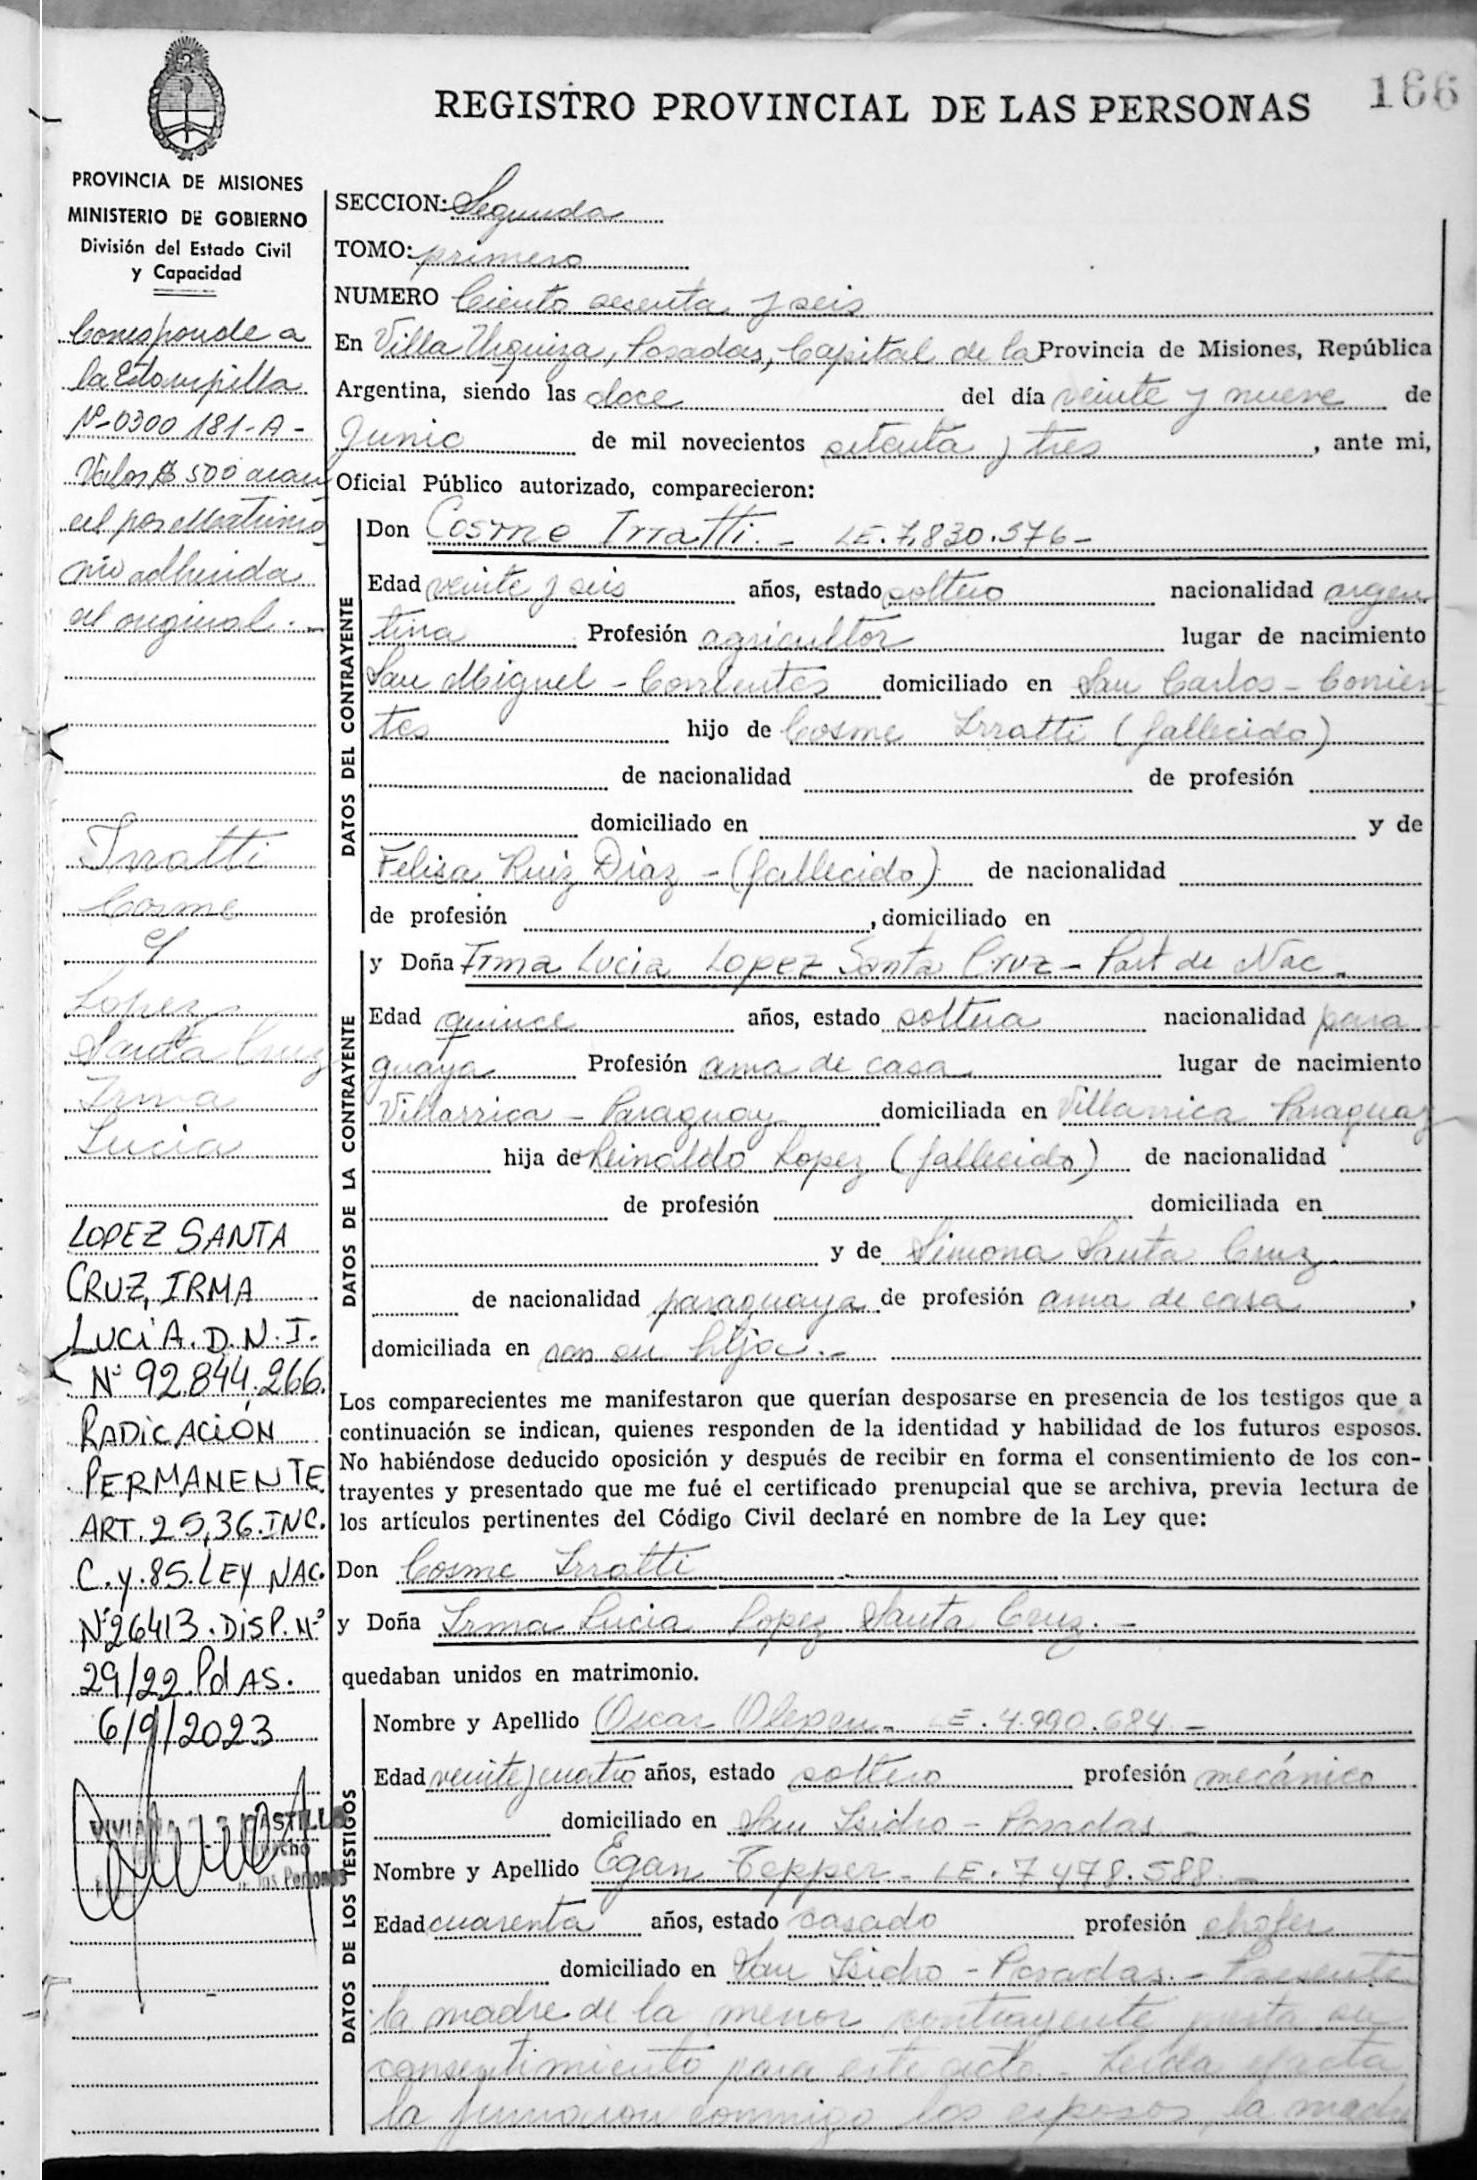 166
REGISTRO PROVINCIAL DE LAS PERSONAS
PROVINCIA DE MISIONES
MINISTERIO DE GOBIERNO
División del Estado Civil
y Capacidad
Corresponde a
la Estampilla
Nº-0300181-A-
Valor $ 500 aran
cel por Matrimo
nio adherida
al original.-
Irratti
Cosme
c/
Lopez
Santa Cruz
Irma
Lucia
LOPEZ SANTA
CRUZ, IRMA
LUCÍA. D.N.I.
Nº 92.844.266.
RADICACIÓN
PERMANENTE
ART. 25,36.INC.
C.Y.85.LEY NAC.
Nº26413.DISP.Nº
29/22.PdAS.
6/9/2023
SECCION: Segunda
TOMO: primero
NUMERO Ciento sesenta y seis
En Villa Urquiza, Posadas, Capital de la Provincia de Misiones, República
Argentina, siendo las doce del día veinte y nueve de
Junio de mil novecientos setenta y tres, ante mi,
Oficial Público autorizado, comparecieron:
DATOS DEL CONTRAYENTE
Don Cosme Irratti.- LE.7.830.576-
Edad veinte y seis años, estado soltero nacionalidad argen
tina Profesión agricultor lugar de nacimiento
San Miguel - Corrientes domiciliado en San Carlos - Corrien
tes hijo de Cosme Irratti (fallecido)
de nacionalidad de profesión
domiciliado en y de
Felisa Ruiz Diaz - (fallecido) de nacionalidad
de profesión , domiciliado en
DATOS DE LA CONTRAYENTE
y Doña Irma Lucia Lopez Santa Cruz - Part de Nac.
Edad quince años, estado soltera nacionalidad para
guaya Profesión ama de casa lugar de nacimiento
Villarrica - Paraguay domiciliada en Villarrica Paraguay
hija de Reinaldo Lopez (fallecido) de nacionalidad
de profesión domiciliada en
y de Simona Santa Cruz
de nacionalidad paraguaya de profesión ama de casa,
domiciliada en con su hija.-
Los comparecientes me manifestaron que querían desposarse en presencia de los testigos que a
continuación se indican, quienes responden de la identidad y habilidad de los futuros esposos.
No habiéndose deducido oposición y después de recibir en forma el consentimiento de los con-
trayentes y presentado que me fué el certificado prenupcial que se archiva, previa lectura de
los artículos pertinentes del Código Civil declaré en nombre de la Ley que:
Don Cosme Irratti
y Doña Irma Lucia Lopez Santa Cruz.-
quedaban unidos en matrimonio.
DATOS DE LOS TESTIGOS
Nombre y Apellido Oscar LE.4.990.684-
Edad veinte y cuatro años, estado soltero profesión mecánico
domiciliado en San Isidro - Posadas
Nombre y Apellido Egan Tepper - LE.7478.588.-
Edad cuarenta años, estado casado profesión chofer
domiciliado en San Isidro - Posadas.- Presente
la madre de la menor contrayente presta su
consentimiento para este acto.- Leida el acta
la firmaron conmigo los esposos, la madre